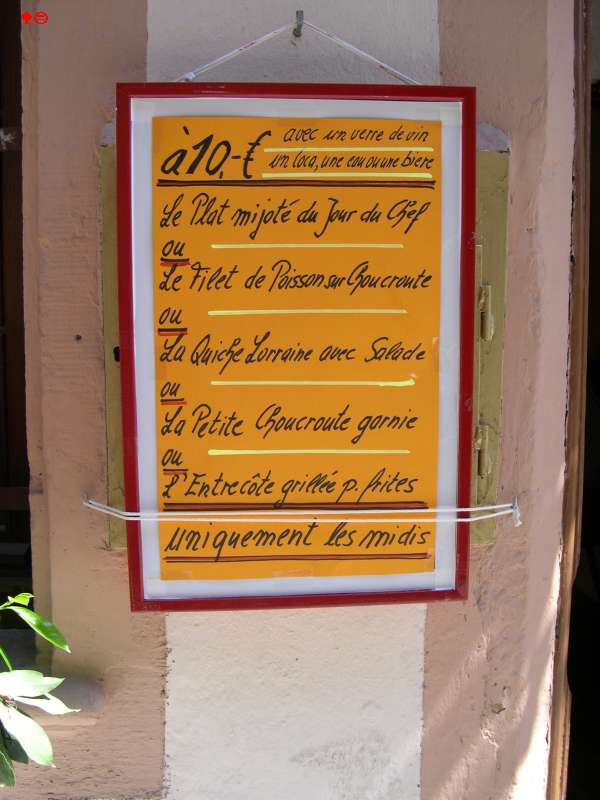 à 10,-€ avec un verre de vin
un Coca, une eau ou une bière
Le Plat mijoté du Jour du Chef
ou
Le Filet de Poisson sur Choucroute
ou
La Quiche Lorraine avec Salade
ou
La Petite Choucroute garnie
ou
L'Entrecôte grillée p. frites
uniquement les midis